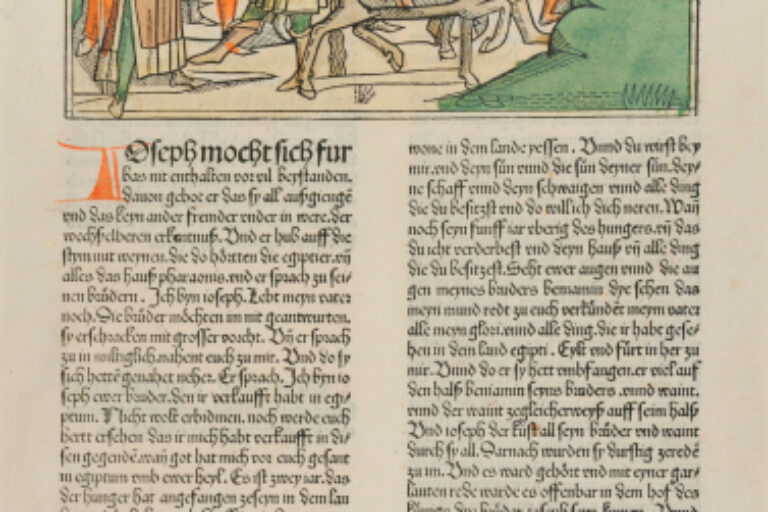 Joseph mocht sich fur
bas nit enthalten vor vil beystanden.
dauon gebot er das sy all außgiengē
vnd das keyn ander fremder vnder in were.der
wechselberen erkantnuß. Vnd er hub auff die
stym mit weynen.die do hōrtten die egiptier.vn̄
alles das hauß pharaonis.vnd er sprach zu sei-
nen brūdern. Ich byn ioseph. Lebt meyn vater
noch. Die brūder mōchten im nit geantwurten.
sy erschracken mit grosser vorcht. Vn̄ er sprach
zu in miltiglich.nahent euch zu mir. Vnd do sy
sich hettē genahet neher. Er sprach. Ich byn io
seph ewer bruder.den ir verkaufft habt in egi-
ptum. Nicht wolt erbidmen. noch werde euch
hertt ersehen das ir mich habt verkaufft in di-
sen gegendē.wan̄ got hat mich vor euch gesant
in egiptum vmb ewer heyl. Es ist zwey iar.das
der hunger hat angefangen zeseyn in dem lan
wone in dem lande yessen. Vnnd du wirst bey
mir.vnd deyn sūn vnnd die sūn deyner sūn.dey-
ne schaff vnnd deyn schwaigen vnnd alle ding
die du besitzst vnd do will ich dich neren. Wan̄
noch seyn funff iar vberig des hungers.vn̄ das
du icht verderbest vnd deyn hauß vn̄ alle ding
die du besitzest. Seht ewer augen vnnd die au
gen meynes bruders beniamin dye sehen das
meyn mund redt zu euch verkūndēt meym vater
alle meyn glori.vnnd alle ding.die ir habt gese-
hen in dem land egipti. Eylt vnd fūrt in her zu
mir. Vnnd do er sy hett vmbfangen.er viel auf
den halß beniamin seyns bruders.vnnd waint.
vnnd der waint zegleicherweyß auff seim halß
Vnd ioseph der kust all seyn brūder vnd waint
durch sy all. Darnach wurden sy durstig zeredē
zu im. Vnd es ward gehōrt vnd mit eyner gar-
lauten rede warde es offenbar in dem hof des